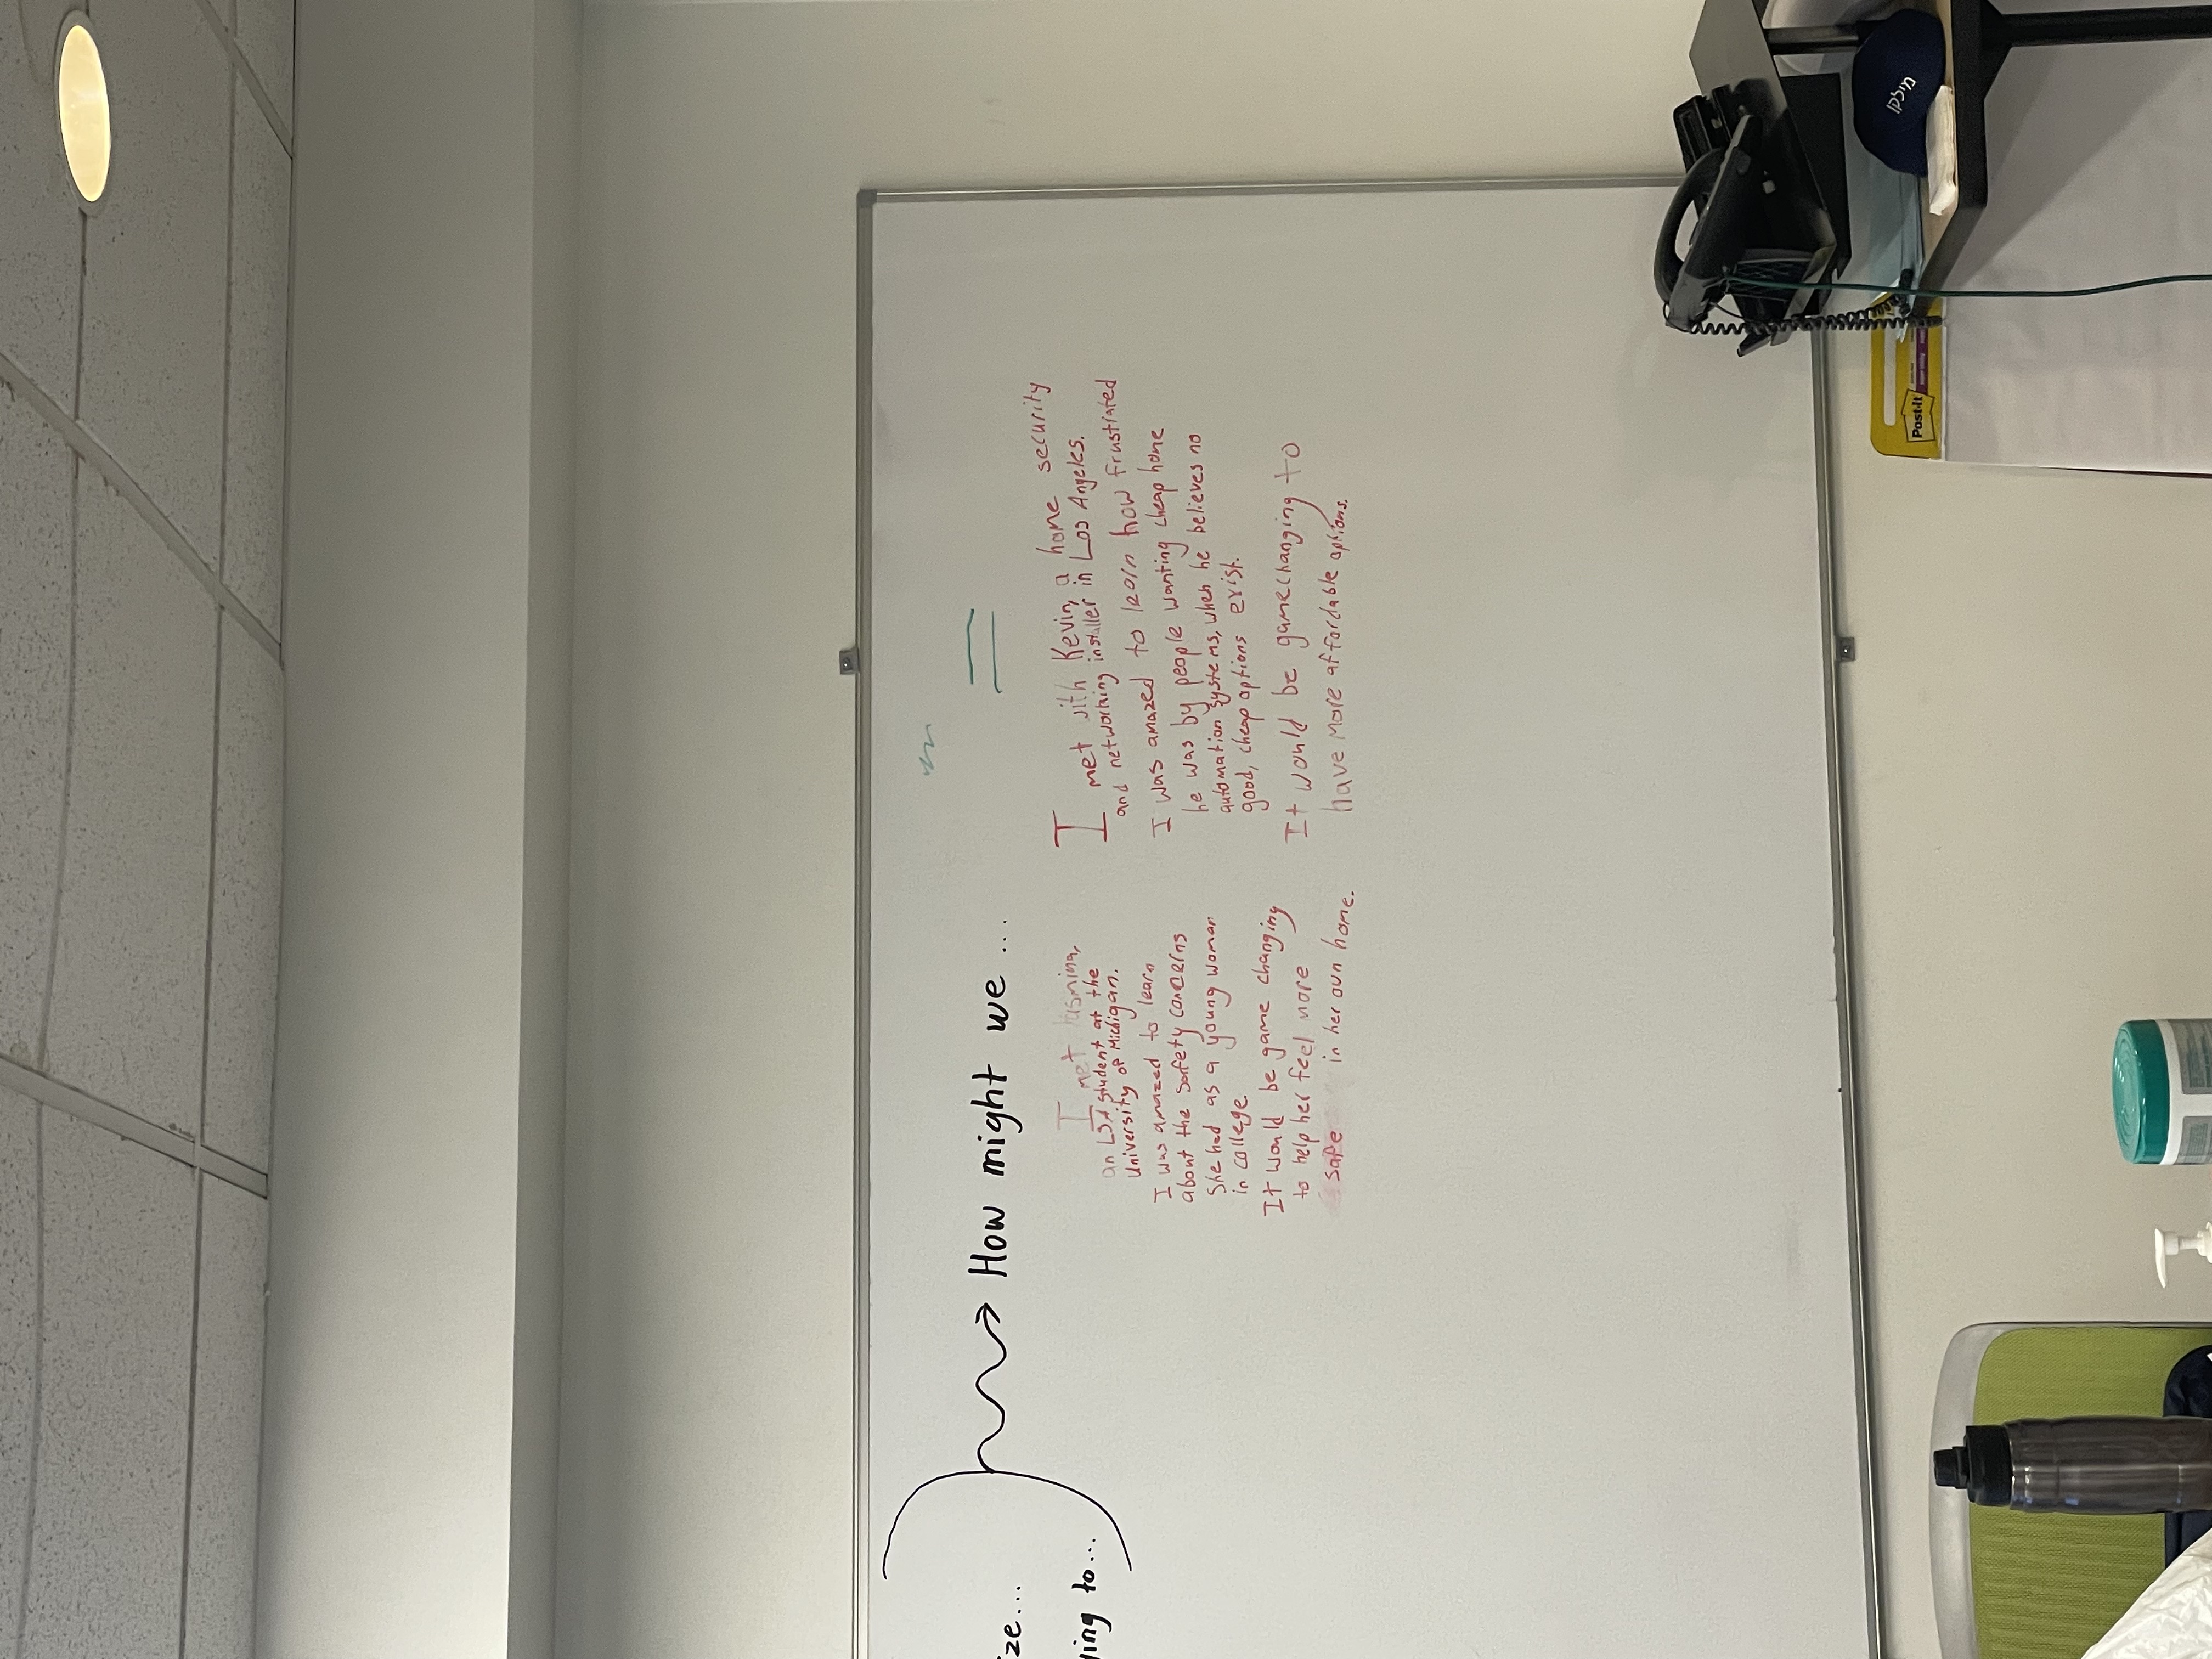 ze...
ying to...
How might we ...
I met Yasmina,
an LSA student at the
University of Michigan.
I was amazed to learn
about the safety concerns
She had as a young woman
in college.
It would be game changing
to help her feel more
safe in her own home.
I met with Kevin, a home security
and networking installer in Los Angeles.
I was amazed to learn how frustrated
he was by people wanting cheap home
automation systems, when he believes no
good, cheap options exist.
It would be gamechanging to
have more affordable options.
Post-it
מילקן